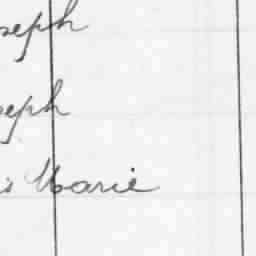 seph
seph
s Marie